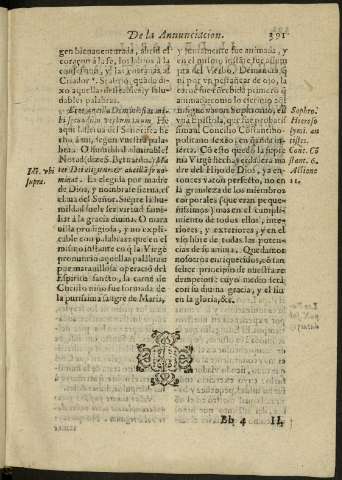 De la Annunciacion. 391
gen bienauenturada, abrid el
coraçon a la fe, los labios a la
confession, y las entrañas al
Criador. Y abriolo, quãdo di-
xo aquellas deificas, y salu-
dables palabras.
Ecce ancilla Domini fiat mi-
hi secundum verbum tuum. He
aqui la sierua del Señor, se ha
hecho à mi, segun vuestra pala-
bra. O humildad admirable!
Notad (dize S. Bernardo) Ma-
ter Dei eligitur, & ancillã se no-
minat. Es elegida por madre
de Dios, y nombrase sierua, es
claua del Señor. Siẽpre la hu-
mildad suele ser virtud fami-
liar à la gracia diuina. O mara
uilla prodigiosa, y no expli-
cable con palabras! que en el
mismo instante en q̃ la Virgẽ
pronunciò aquellas palabras
por marauillosa operaciõ del
Espiritu sancto, la carne de
Christo niño fue formada de
la purissima sangre de Maria,
Id. vbi
supra.
y juntamente fue animada, y
en el mismo instãte fue assum
pta del Verbo. De manera q̃
ni por vn pestañear de ojo, la
carne fue cõcebida primero q̃
animada: como lo escriuio
Sophronio, en
vna Epistola, que fue probatis
sima al Concilio Constantino-
politano sexto, en quãdo in-
tiste. Cõ esto quedò la supre
ma Virgẽ hecha verdadera ma
dre del Hijo de Dios, ya en-
tonces varon perfecto, no en
la grandeza de los miembros
corporales (que eran peque-
ñissimos) mas en el cumpli-
miento de todos ellos, inte-
riores, y exteriores, y en el
vso libre de todas las poten-
cias de su anima. Quedamos
nosotros enriquezidos, cõ tan
felice principio de nuestra re
dempcion: cuyo medio serà
con su diuina gracia, y el fin
en la gloria, &c.
Sophro.
Hieroso
lymi. an
tistes.
Conc. Cõ
stant. 6.
Actione
11.
Bb 4 II.